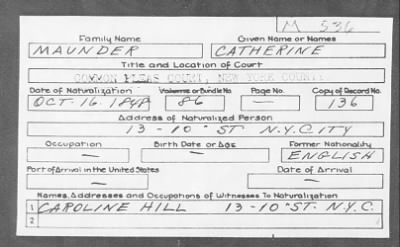 M 536
Family Name Given Name or Names
MAUNDER CATHERINE
Title and Location of Court
COMMON PLEAS COURT, NEW YORK COUNTY
Date of Naturalization Volume or Bundle No. Page No. Copy of Record No.
OCT. 16. 1848 86 — 136
Address of Naturalized Person
13 - 10 " ST N.Y. CITY
Occupation Birth Date or Age Former Nationality
— — ENGLISH
Port of Arrival in the United States Date of Arrival
— —
Names, Addresses and Occupations of Witnesses To Naturalization
1 CAROLINE HILL 13 - 10 " ST. N.Y.C.
2